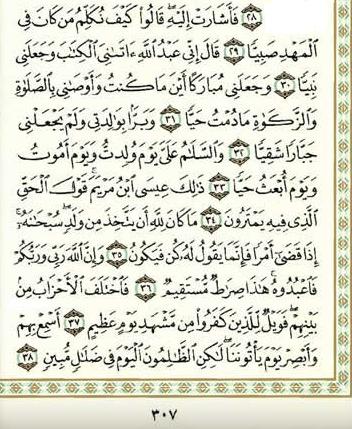 ٢٨ فَأَشَارَتْ إِلَيْهِ ۖ قَالُوا۟ كَيْفَ نُكَلِّمُ مَن كَانَ فِى
ٱلْمَهْدِ صَبِيًّا ٢٩ قَالَ إِنِّى عَبْدُ ٱللَّهِ ءَاتَىٰنِىَ ٱلْكِتَٰبَ وَجَعَلَنِى
نَبِيًّا ٣٠ وَجَعَلَنِى مُبَارَكًا أَيْنَ مَا كُنتُ وَأَوْصَٰنِى بِٱلصَّلَوٰةِ
وَٱلزَّكَوٰةِ مَا دُمْتُ حَيًّا ٣١ وَبَرًّۢا بِوَٰلِدَتِى وَلَمْ يَجْعَلْنِى
جَبَّارًا شَقِيًّا ٣٢ وَٱلسَّلَٰمُ عَلَىَّ يَوْمَ وُلِدتُّ وَيَوْمَ أَمُوتُ
وَيَوْمَ أُبْعَثُ حَيًّا ٣٣ ذَٰلِكَ عِيسَى ٱبْنُ مَرْيَمَ ۚ قَوْلَ ٱلْحَقِّ
ٱلَّذِى فِيهِ يَمْتَرُونَ ٣٤ مَا كَانَ لِلَّهِ أَن يَتَّخِذَ مِن وَلَدٍ ۖ سُبْحَٰنَهُۥٓ ۚ
إِذَا قَضَىٰٓ أَمْرًا فَإِنَّمَا يَقُولُ لَهُۥ كُن فَيَكُونُ ٣٥ وَإِنَّ ٱللَّهَ رَبِّى وَرَبُّكُمْ
فَٱعْبُدُوهُ ۚ هَٰذَا صِرَٰطٌ مُّسْتَقِيمٌ ٣٦ فَٱخْتَلَفَ ٱلْأَحْزَابُ مِنۢ
بَيْنِهِمْ ۖ فَوَيْلٌ لِّلَّذِينَ كَفَرُوا۟ مِن مَّشْهَدِ يَوْمٍ عَظِيمٍ ٣٧ أَسْمِعْ بِهِمْ
وَأَبْصِرْ يَوْمَ يَأْتُونَنَا ۖ لَٰكِنِ ٱلظَّٰلِمُونَ ٱلْيَوْمَ فِى ضَلَٰلٍ مُّبِينٍ ٣٨
٣٠٧